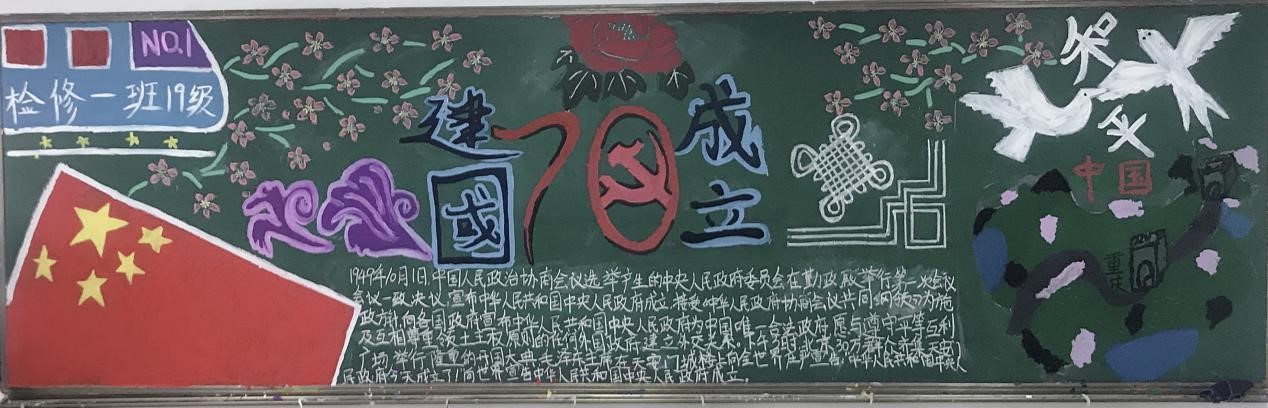 NO.1
检修一班19级
建国
70
成立
和平
中国
重庆
1949年10月1日,中国人民政治协商会议选举产生的中央人民政府委员会在勤政殿举行第一次会议
会议一致决议,宣布中华人民共和国中央人民政府成立,接受中华人民政府协商会议共同纲领为施
政方针,向各国政府宣布中华人民共和国中央人民政府为中国唯一合法政府,愿与遵守平等互利
及互相尊重领土主权原则的任何外国政府建立外交关系。下午3时,北京30万群众齐集
广场,举行隆重的开国大典,毛泽东主席在天安门城楼上向全世界庄严宣告,中华人民共和国中央人
民政府今天成立了!向世界宣告中华人民共和国中央人民政府成立。